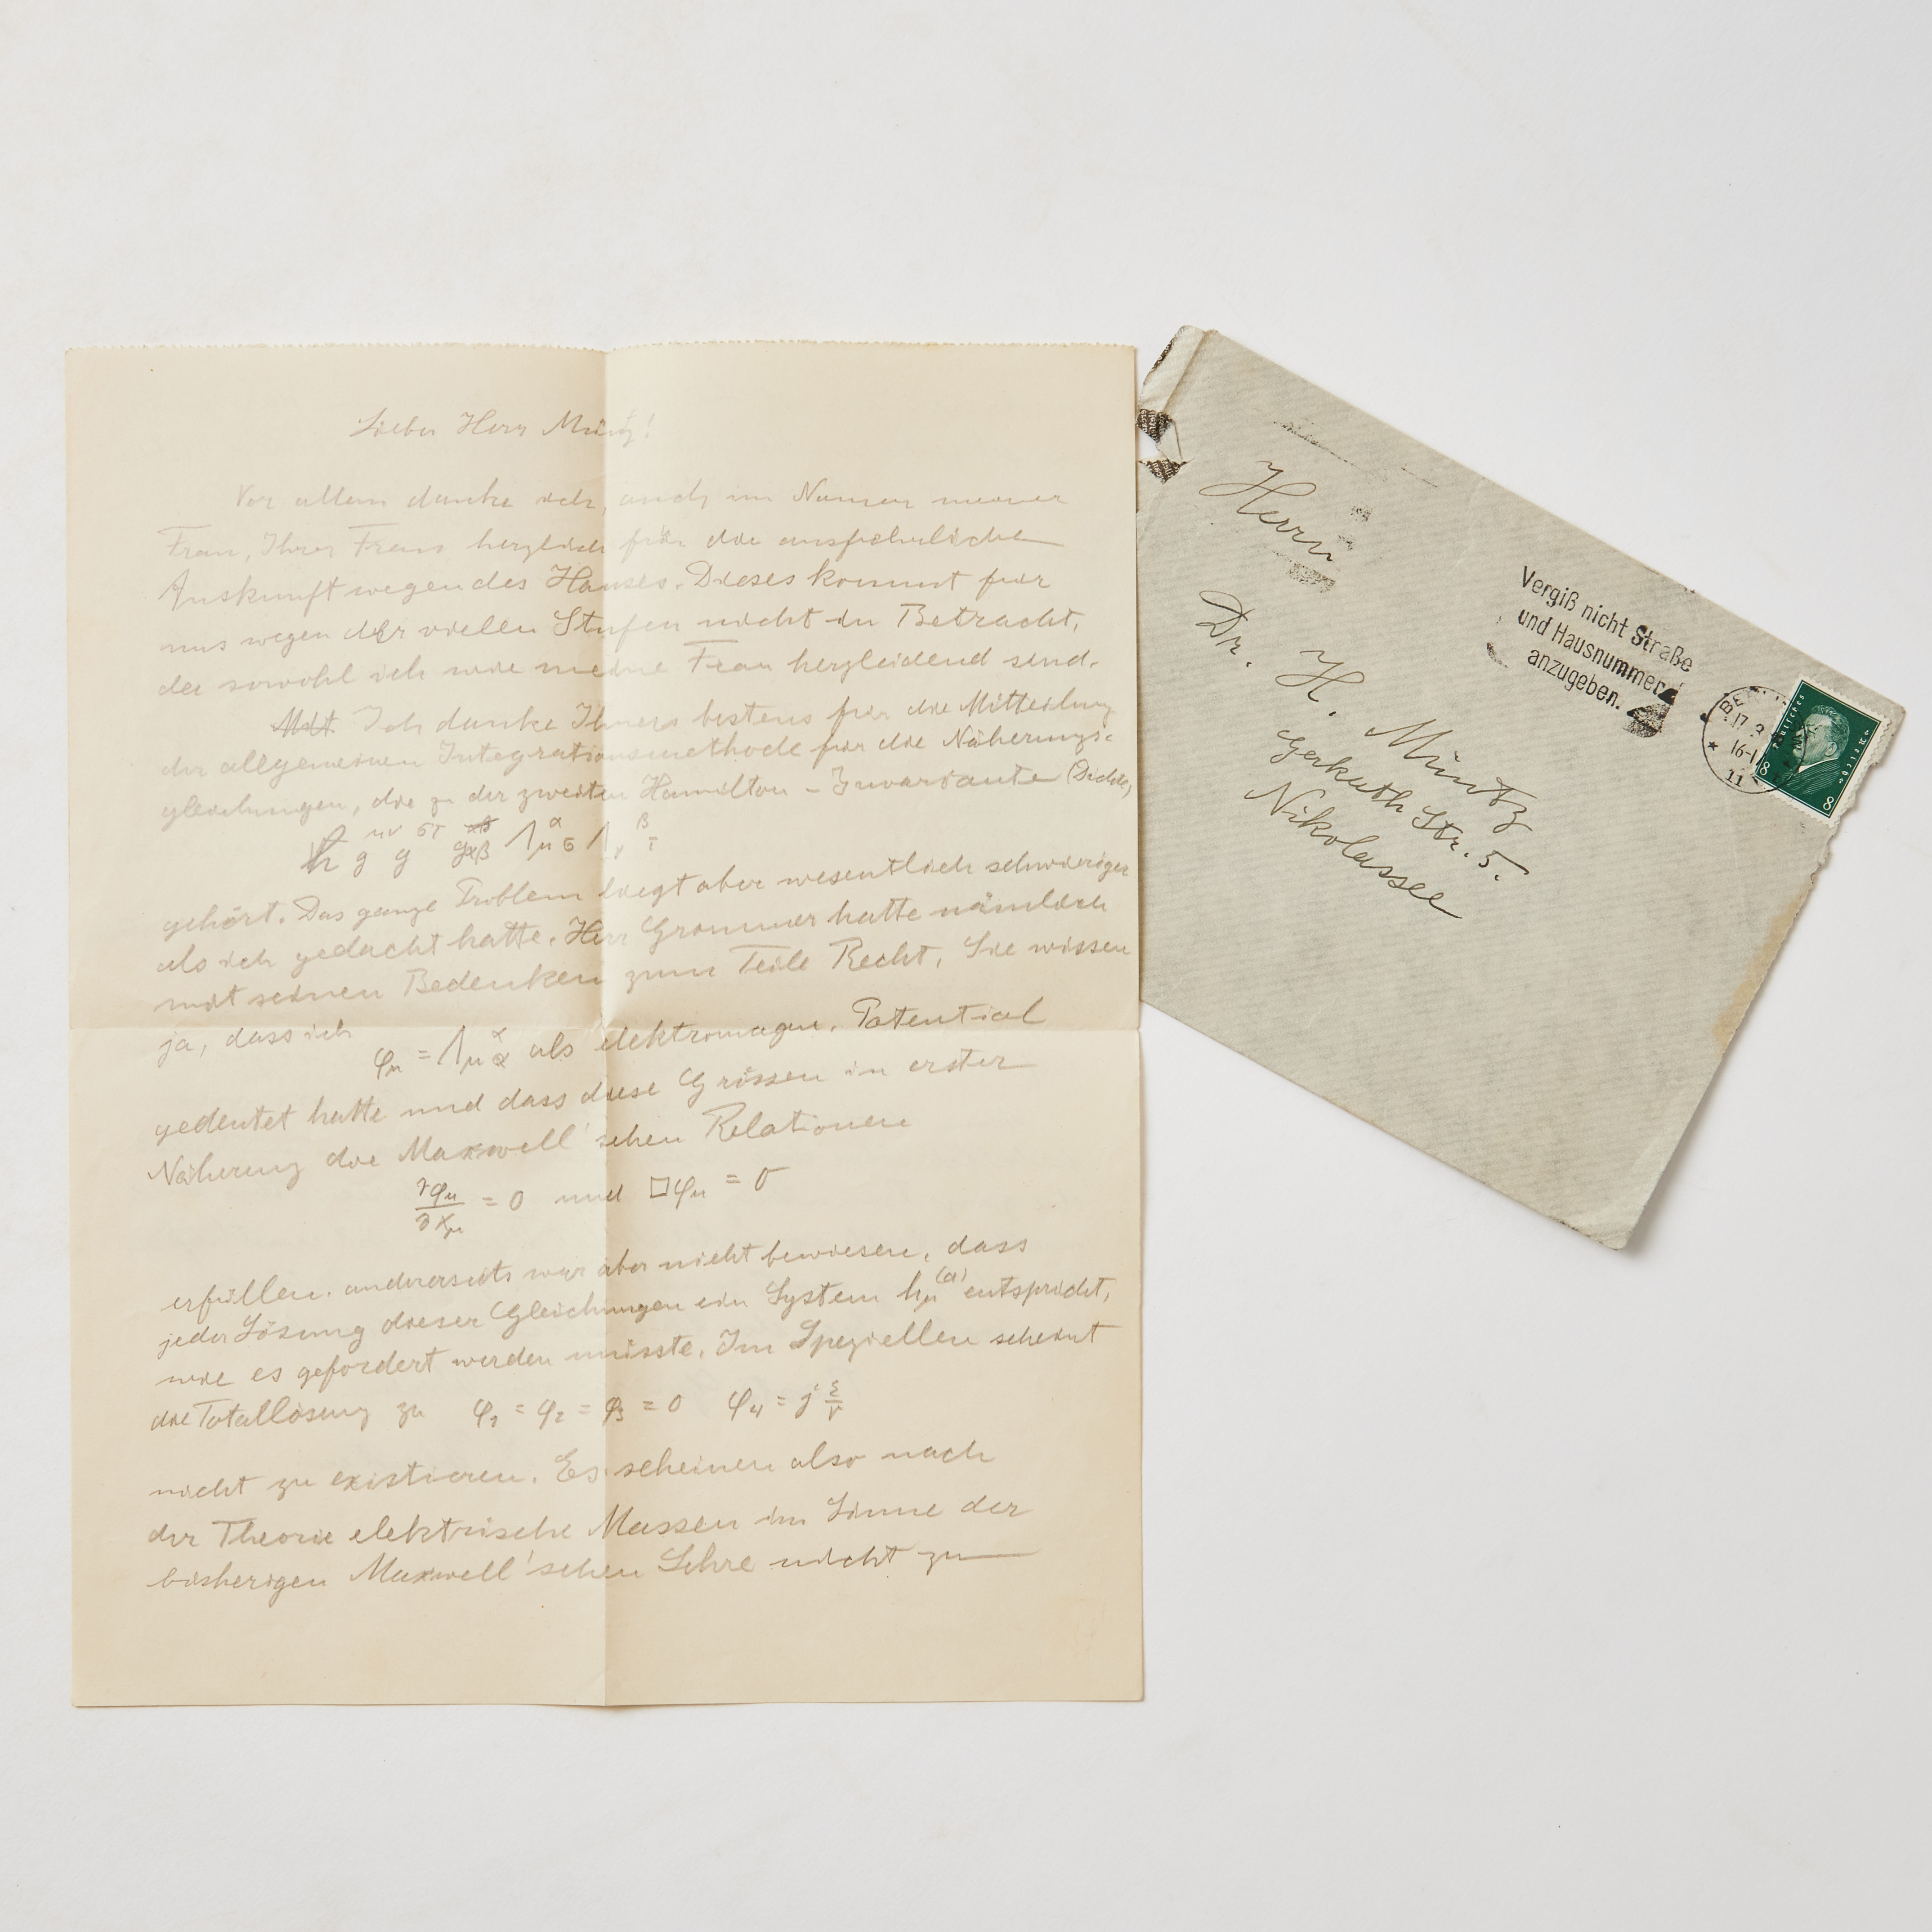 Lieber Herr Müntz!
Vor allem danke ich, auch im Namen meiner
Frau, Ihrer Frau herzlich für die ausführliche
Auskunft wegen des Hauses. Dieses kommt für
uns wegen der vielen Stufen nicht in Betracht,
da sowohl ich wie meine Frau herzleidend sind.
Ich danke Ihnen bestens für die Mitteilung
der allgemeinen Integrationsmethode für die Näherungs-
gleichungen, die zu der zweiten Hamilton-Invariante (Dichte)
h g^{μν} g^{στ} g_{αβ} Λ_μ^α_σ Λ_ν^β_τ
gehört. Das ganze Problem liegt aber wesentlich schwieriger
als ich gedacht hatte. Herr Grommer hatte nämlich
mit seinen Bedenken zum Teile Recht. Sie wissen
ja, dass ich
φ_μ = Λ_μ^α_α als elektromagn. Potential
gedeutet hatte und dass diese Grössen in erster
Näherung die Maxwell'schen Relationen
∂φ_μ/∂x_μ = 0 und □φ_μ = 0
erfüllen. andererseits war aber nicht bewiesen, dass
jeder Lösung dieser Gleichungen ein System h_μ^(a) entspricht,
wie es gefordert werden müsste. Im Speziellen scheint
die Totallösung zu φ_1 = φ_2 = φ_3 = 0 φ_4 = j ε/r
nicht zu existieren. Es scheinen also nach
der Theorie elektrische Massen im Sinne der
bisherigen Maxwell'schen Lehre nicht zu
Herrn
Dr. H. Müntz
Nikolassee
Vergiß nicht Straße
und Hausnummer
anzugeben.
17. 2
16-1
11
Deutsches Reich
8 8